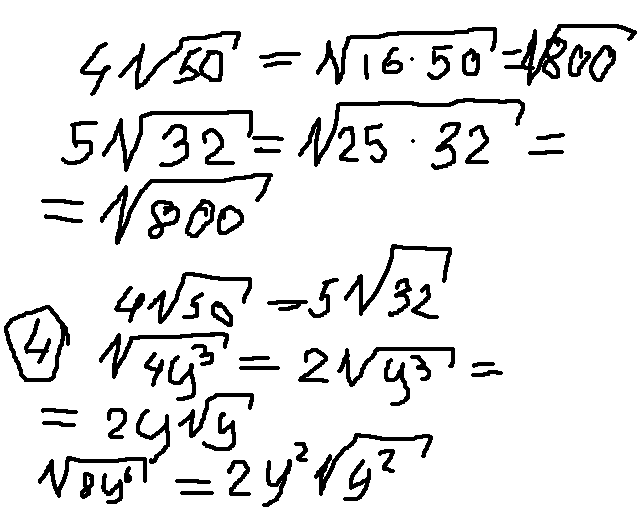 4√50 = √16·50 = √800
5√32 = √25·32 =
= √800
4√50 = 5√32
④ √4y³ = 2√y³ =
= 2y√y
√8y⁶ = 2y²√y²